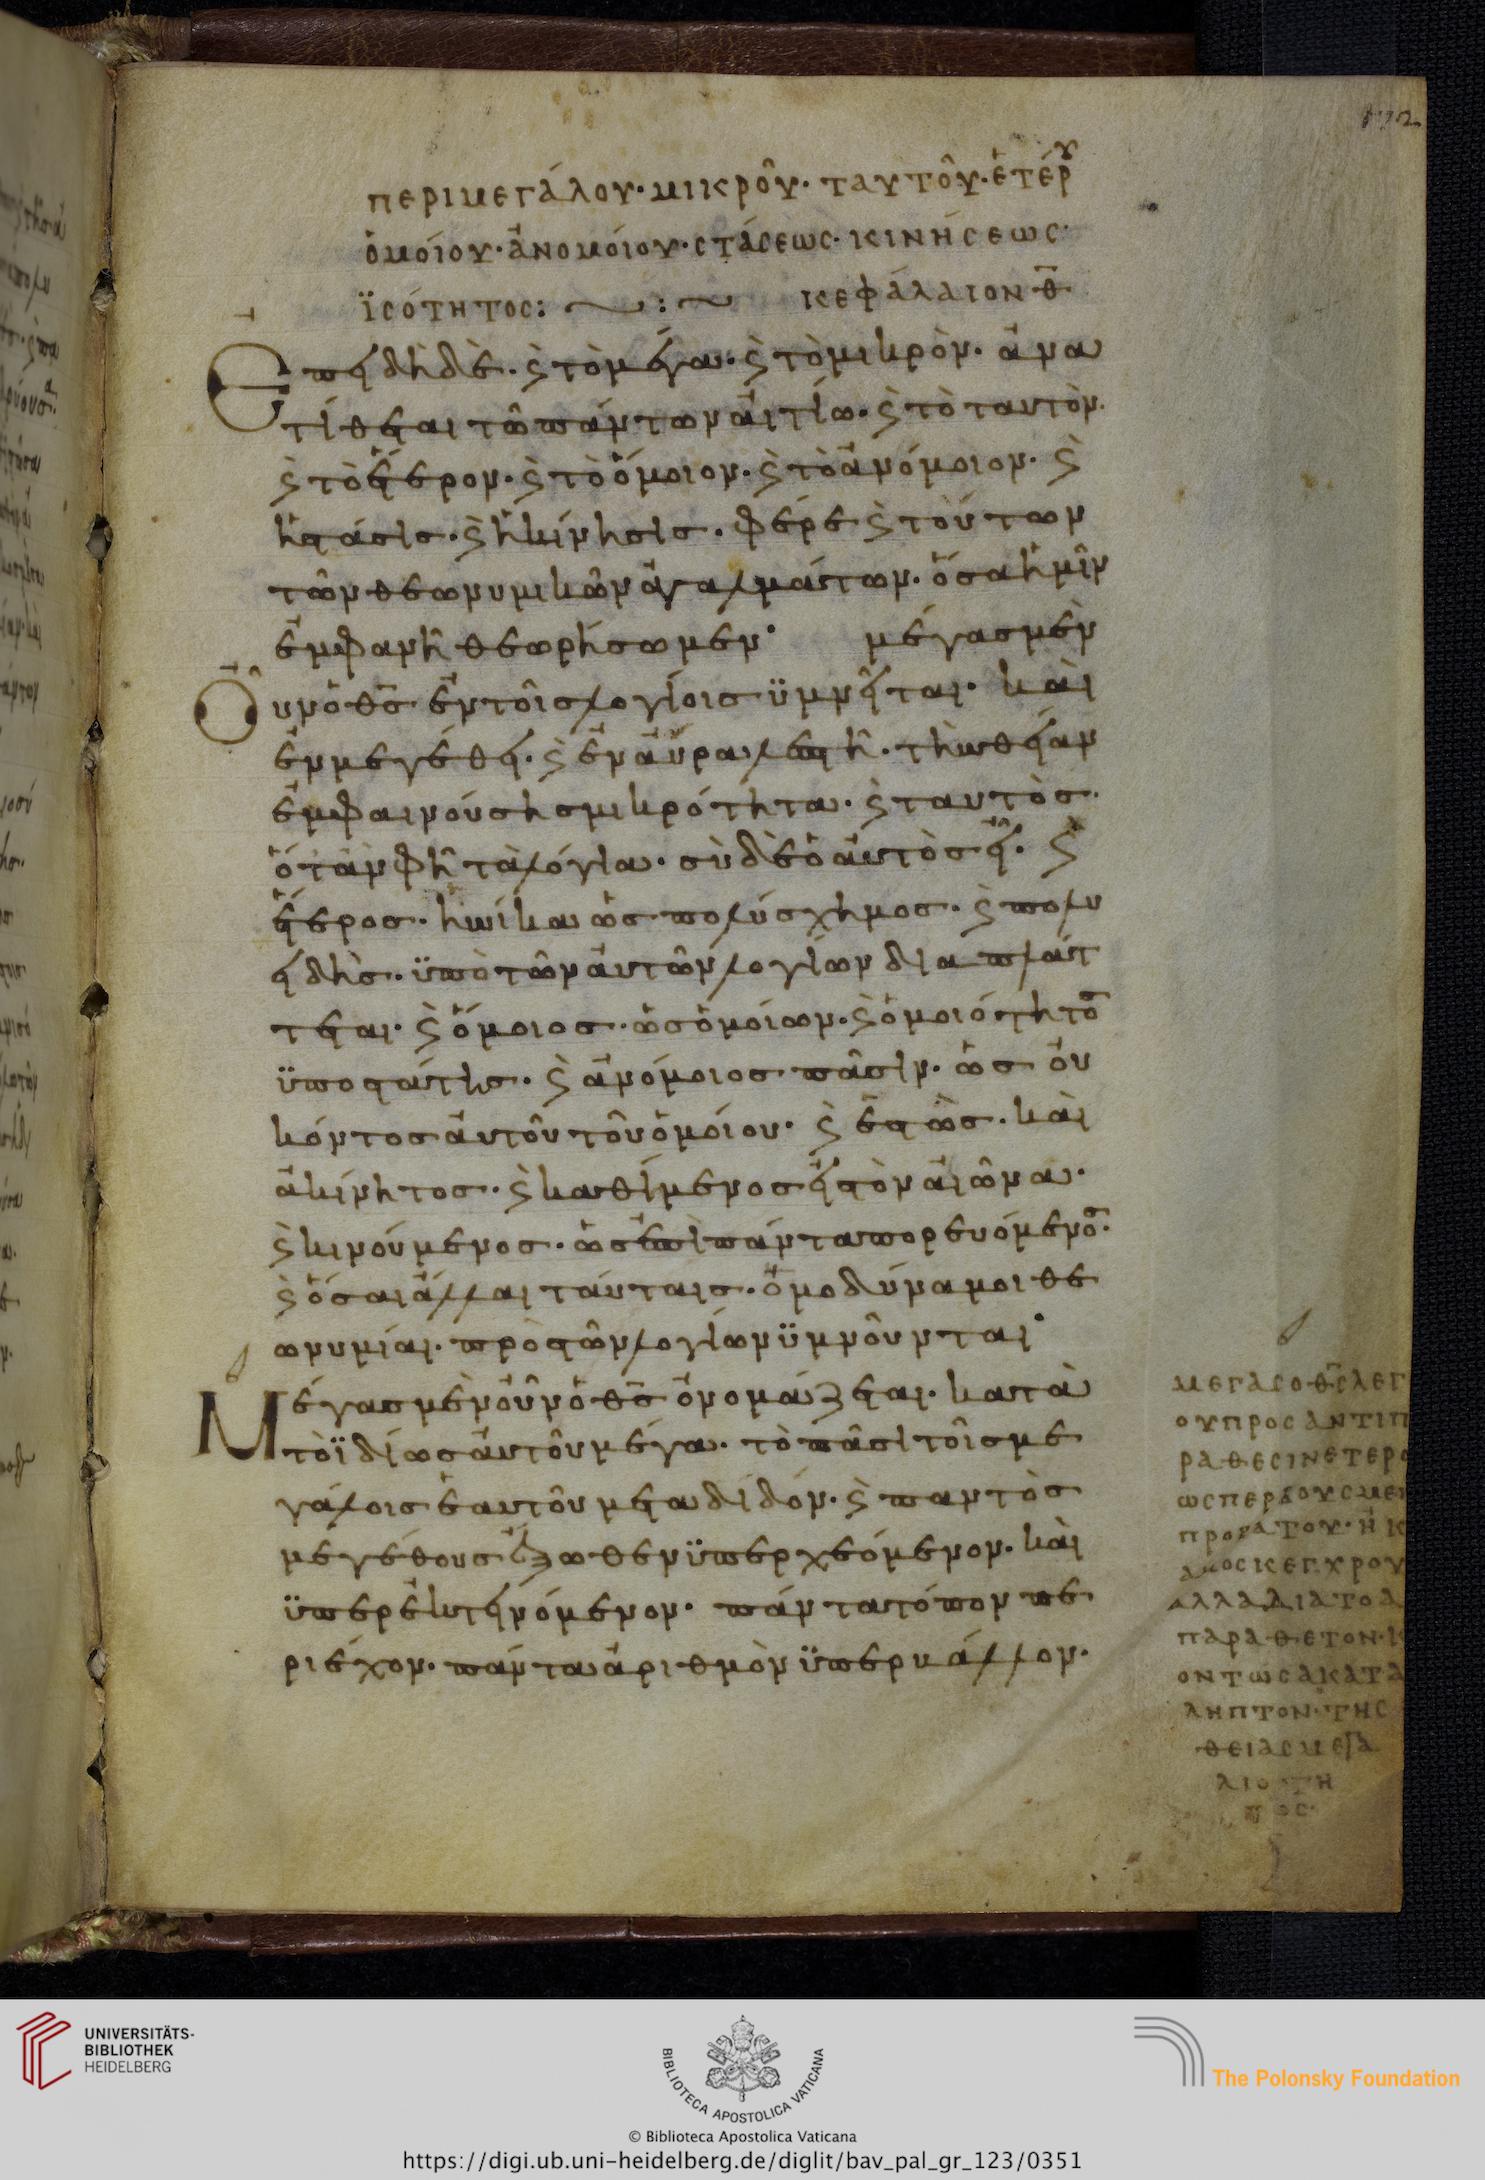 172
περὶ μεγάλου· μικροῦ· ταυτοῦ· ἑτέρου
ὁμοίου· ἀνομοίου· στάσεως· κινήσεως·
ϊσότητος: κεφάλαιον θ
Επειδὴ δὲ· ϗ τὸ μέγα· ϗ τὸ μικρὸν· ἀνα
τίθεται τῶ πάντων αἰτίω· ϗ τὸ ταυτὸν·
ϗ τὸ ἕτερον· ϗ τὸ ὅμοιον· ϗ τὸ ἀνόμοιον· ϗ
ἡ στάσις· ϗ ἡ κίνησις· φέρε ϗ τούτων
τῶν θεωνυμικῶν ἀγαλμάτων· ὅσα ἡμῖν
ἐμφανῆ θεωρήσωμεν· μέγας μὲν
Οὖν ὁ θς ἐν τοῖς λογίοις ϋμνεῖται· καὶ
ἐν μεγέθει· ϗ ἐν αὔρα λεπτῆ· τὴν θείαν
ἐμφαινούση σμικρότητα· ϗ ταυτὸς·
ὅταν φῆ τὰ λόγια· σὺ δὲ ὁ αὐτὸς εἶ· ϗ
ἕτερος· ἡνίκα ὡς πολύσχημος· ϗ πολυ
ειδὴς· ϋπὸ τῶν αὐτῶν λογίων διαπλάτ
τεται· ϗ ὅμοιος· ὡς ὁμοίων· ϗ ὁμοιότητος
ϋποστάτης· ϗ ἀνόμοιος πᾶσιν· ὡς οὐ
κόντος αὐτοῦ τοῦ ὁμοίου· ϗ ἑστὼς· καὶ
ἀκίνητος· ϗ καθήμενος εἰς τὸν αἰῶνα·
ϗ κινούμενος· ὡς ἐπὶ πάντα πορευόμενος·
ϗ ὅσαι ἄλλαι ταύταις· ὁμοδύναμοι θε
ωνυμίαι· πρὸς τῶν λογίων ϋμνοῦνται·
Μέγας μὲν οὖν ὁ θς ὀνομάζεται· κατὰ
τὸ ϊδίως αὐτοῦ μέγα· τὸ πᾶσι τοῖς με
γάλοις ἑαυτοῦ μεταδιδόν· ϗ παντὸς
μεγέθους ἔξωθεν ϋπερχεόμενον· καὶ
ϋπερεκτεινόμενον· πάντα τόπον πε
ριέχον· πάντα ἀριθμὸν ϋπερβάλλον·
μεγας ο θς λεγ
ου προς αντιπ
ραθεσιν ετερο
ωσπερ βους με
προβατου· ἢ κ
αμος κεγχρου
αλλα δια το α
παραθετον· κ
οντως ακατα
ληπτον· της
θειας μεγα
λιοτη
τος·
UNIVERSITÄTS-
BIBLIOTHEK
HEIDELBERG
BIBLIOTECA APOSTOLICA VATICANA
The Polonsky Foundation
© Biblioteca Apostolica Vaticana
https://digi.ub.uni-heidelberg.de/diglit/bav_pal_gr_123/0351